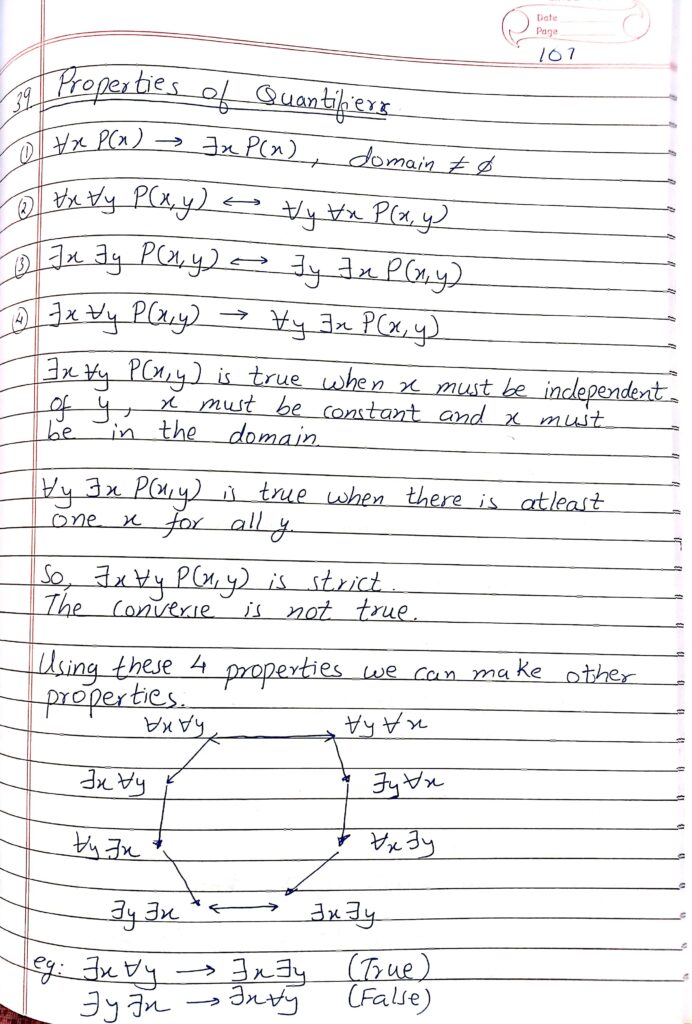 Date
Page
107
39. Properties of Quantifiers
① ∀x P(x) → ∃x P(x), domain ≠ ϕ
② ∀x ∀y P(x,y) ↔ ∀y ∀x P(x,y)
③ ∃x ∃y P(x,y) ↔ ∃y ∃x P(x,y)
④ ∃x ∀y P(x,y) → ∀y ∃x P(x,y)
∃x ∀y P(x,y) is true when x must be independent
of y, x must be constant and x must
be in the domain.
∀y ∃x P(x,y) is true when there is atleast
one x for all y.
So, ∃x ∀y P(x,y) is strict.
The converse is not true.
Using these 4 properties we can make other
properties.
∀x ∀y → ∀y ∀x
∃x ∀y ∃y ∀x
∀y ∃x ∀x ∃y
∃y ∃x ↔ ∃x ∃y
eg: ∃x ∀y → ∃x ∃y (True)
∃y ∃x → ∃x ∀y (False)